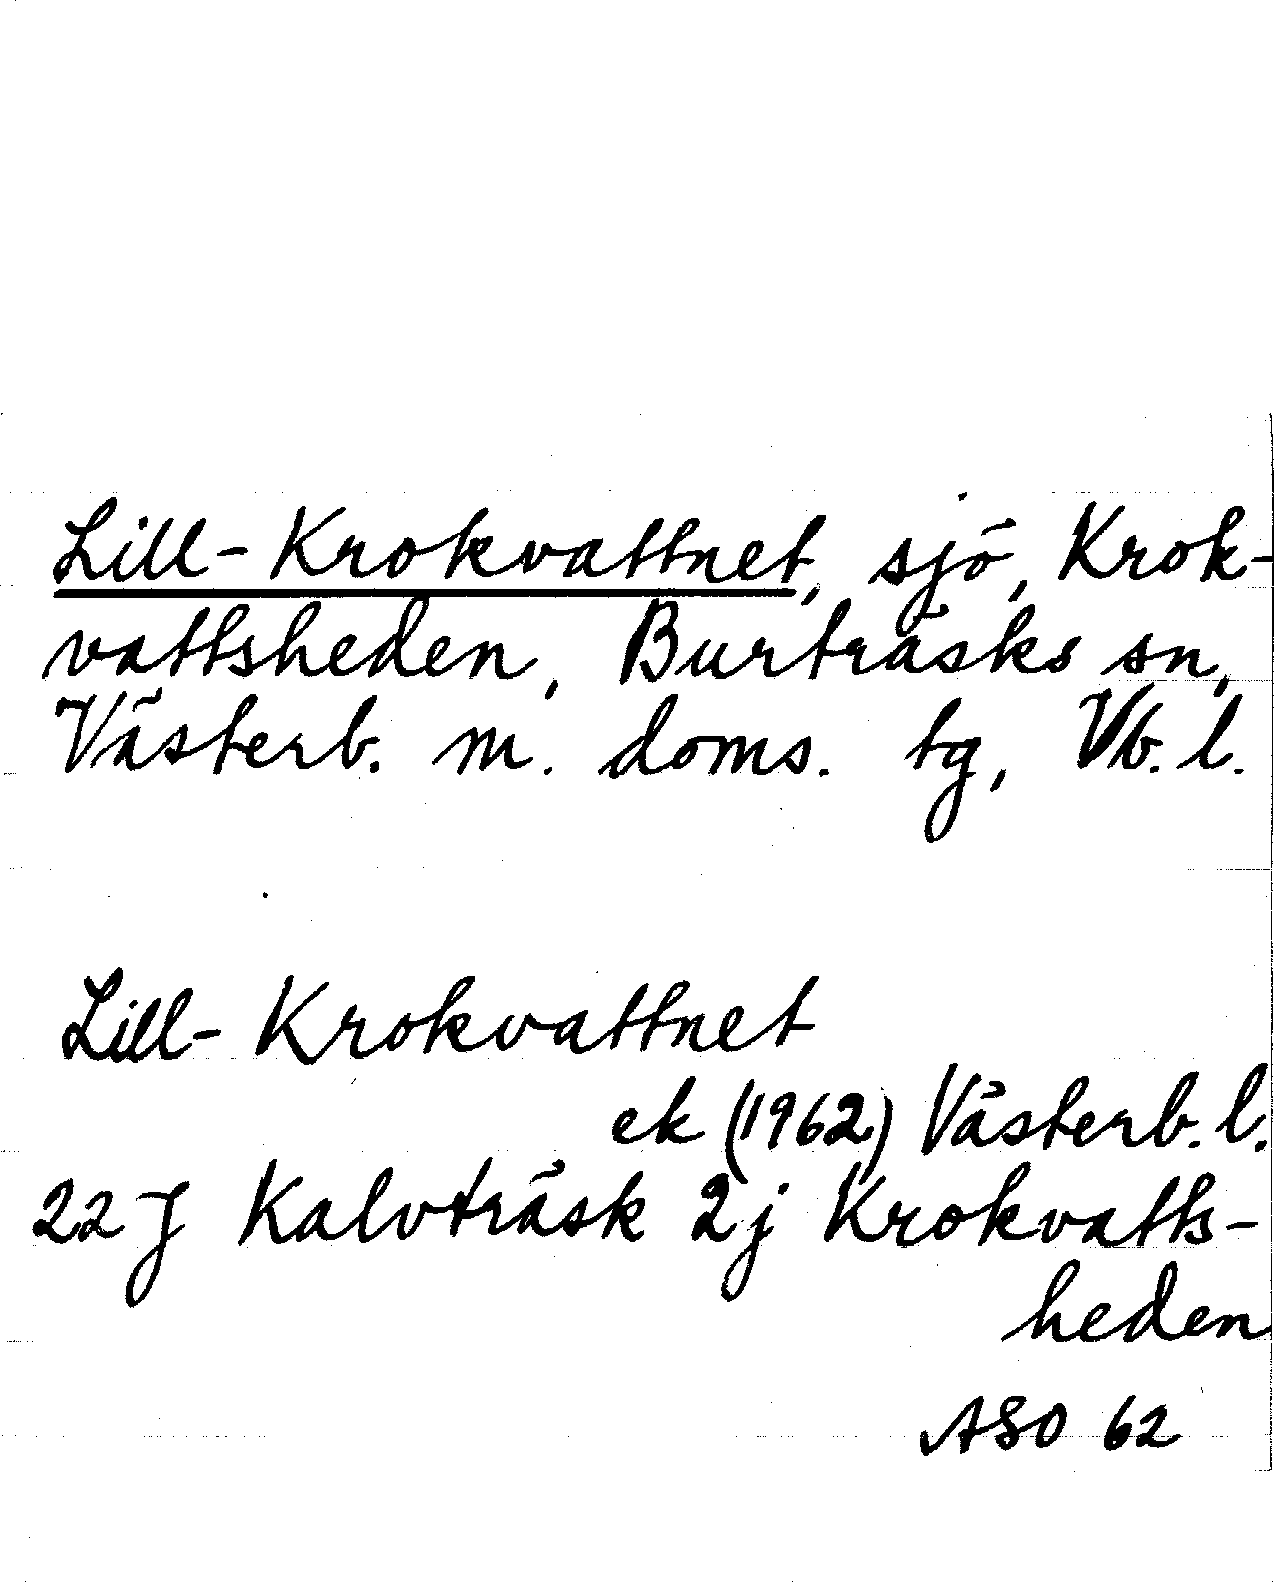 Lill-Krokvattnet, sjö, Krok-
vattsheden, Burträsks sn,
Västerb. m. doms. tg, Vb. l.
Lill-Krokvattnet
ek (1962) Västerb. l.
22 J Kalvträsk 2j Krokvatts-
heden
ASO 62